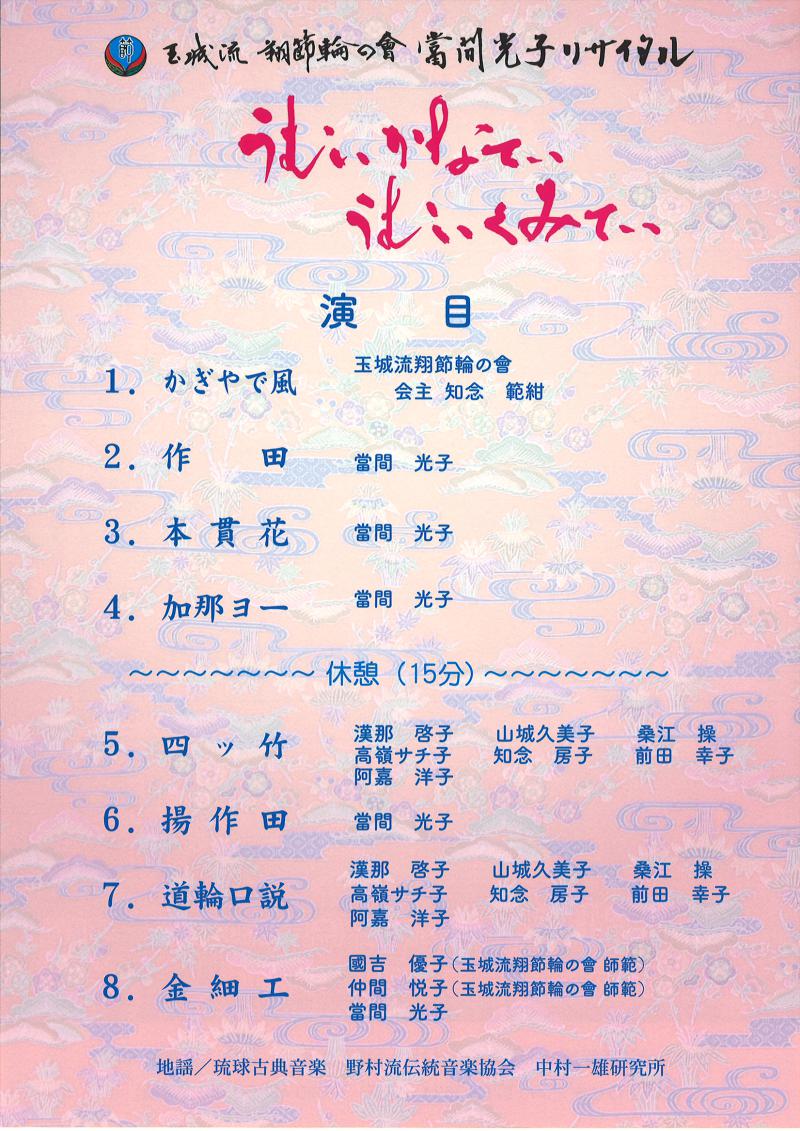 節
玉城流 翔節輪の會 當間光子リサイタル
うむいかなてぃ
うむいくみてぃ
演 目
1. かぎやで風 玉城流翔節輪の會
会主 知念 範紺
2. 作 田 當間 光子
3. 本貫花 當間 光子
4. 加那ヨー 當間 光子
〜〜〜〜〜〜〜 休憩（15分）〜〜〜〜〜〜〜
5. 四ッ竹 漢那 啓子 山城久美子 桑江 操
高嶺サチ子 知念 房子 前田 幸子
阿嘉 洋子
6. 揚作田 當間 光子
7. 道輪口説 漢那 啓子 山城久美子 桑江 操
高嶺サチ子 知念 房子 前田 幸子
阿嘉 洋子
8. 金細工 國吉 優子（玉城流翔節輪の會 師範）
仲間 悦子（玉城流翔節輪の會 師範）
當間 光子
地謡／琉球古典音楽 野村流伝統音楽協会 中村一雄研究所